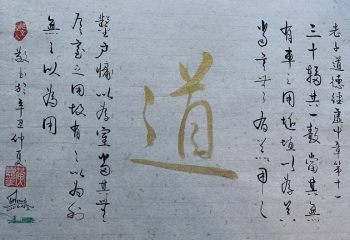 老子道德經虛中章第十一
三十輻共一轂當其無
有車之用埏埴以為器
當其無有器之用
道
鑿戶牖以為室當其無
有室之用故有之以為利
無之以為用
於辛丑仲夏